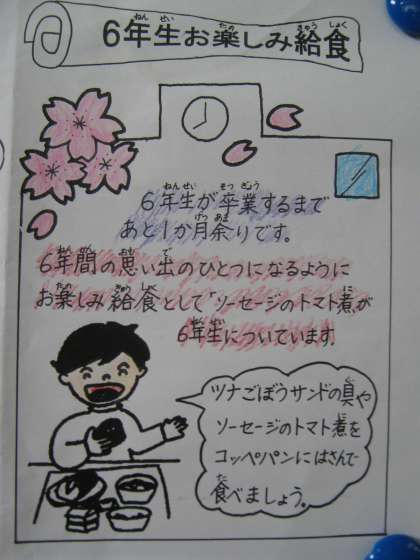 6年生お楽しみ給食
6年生が卒業するまで
あと1か月余りです。
6年間の思い出のひとつになるように
お楽しみ給食として「ソーセージのトマト煮」が
6年生についています。
ツナごぼうサンドの具や
ソーセージのトマト煮を
コッペパンにはさんで
食べましょう。